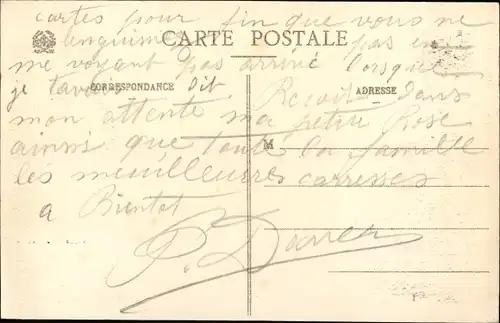 cartes pour fin que vous ne
languime pas en
CARTE POSTALE
me voyant pas arrivé lorsque
je t'avais Dit.
CORRESPONDANCE
ADRESSE
Recoit Dans
mon attente ma petite Rose
M
ainsi que toute la famille
les meuilleurres carresses
a Bientot